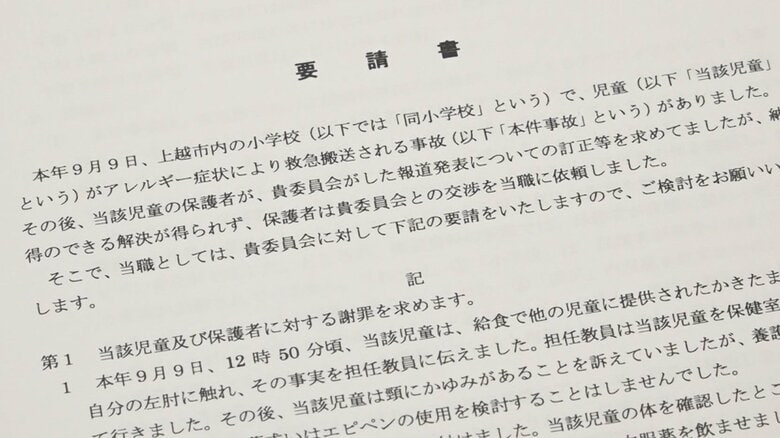 要請書
本年9月9日、上越市内の小学校（以下では「同小学校」という）で、児童（以下「当該児童」
という）がアレルギー症状により救急搬送される事故（以下「本件事故」という）がありました。
その後、当該児童の保護者が、貴委員会がした報道発表についての訂正等を求めてましたが、納
得のできる解決が得られず、保護者は貴委員会との交渉を当職に依頼しました。
そこで、当職としては、貴委員会に対して下記の要請をいたしますので、ご検討をお願いい
します。
記
第1 当該児童及び保護者に対する謝罪を求めます。
1 本年9月9日、12時50分頃、当該児童は、給食で他の児童に提供されたかきたま
自分の左肘に触れ、その事実を担任教員に伝えました。担任教員は当該児童を保健室
て行きました。その後、当該児童は頸にかゆみがあることを訴えていましたが、養護
いはエピペンの使用を検討することはしませんでした。
ました。当該児童の体を確認したとこ
服薬を飲ませまし